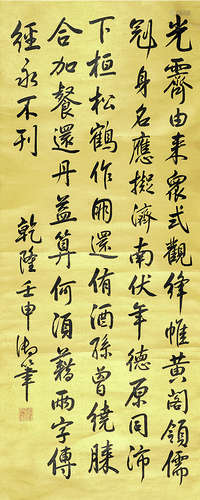 光霽由來眾式觀絳帷黃閣領儒
冠身名應擬濟南伏年德原同沛
下桓松鶴作朋還侑酒孫曾繞膝
合加餐還丹益算何須藉兩字傳
經永不刊
乾隆壬申御筆